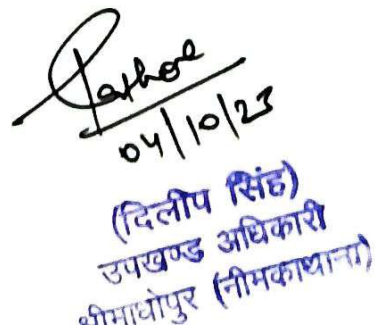 Rathore
04/10/23
(दिलीप सिंह)
उपखण्ड अधिकारी
श्रीमाधोपुर (नीमकाथाना)